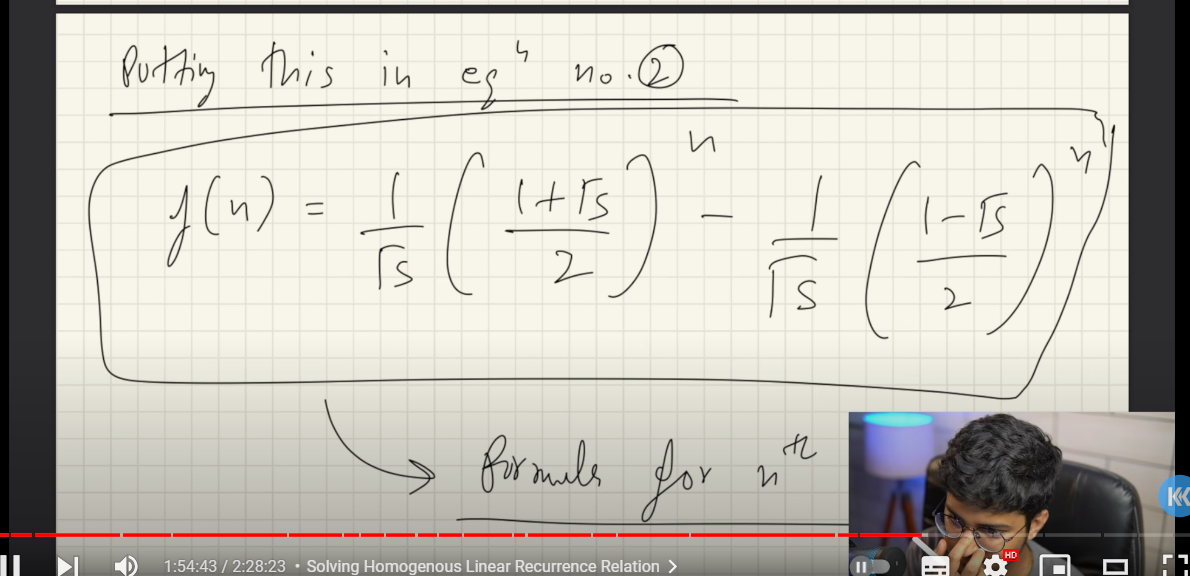 Putting this in eqⁿ no. ②
f(n) = 1/√5 ((1+√5)/2)ⁿ - 1/√5 ((1-√5)/2)ⁿ
formula for nᵗʰ
HD
1:54:43 / 2:28:23 • Solving Homogenous Linear Recurrence Relation